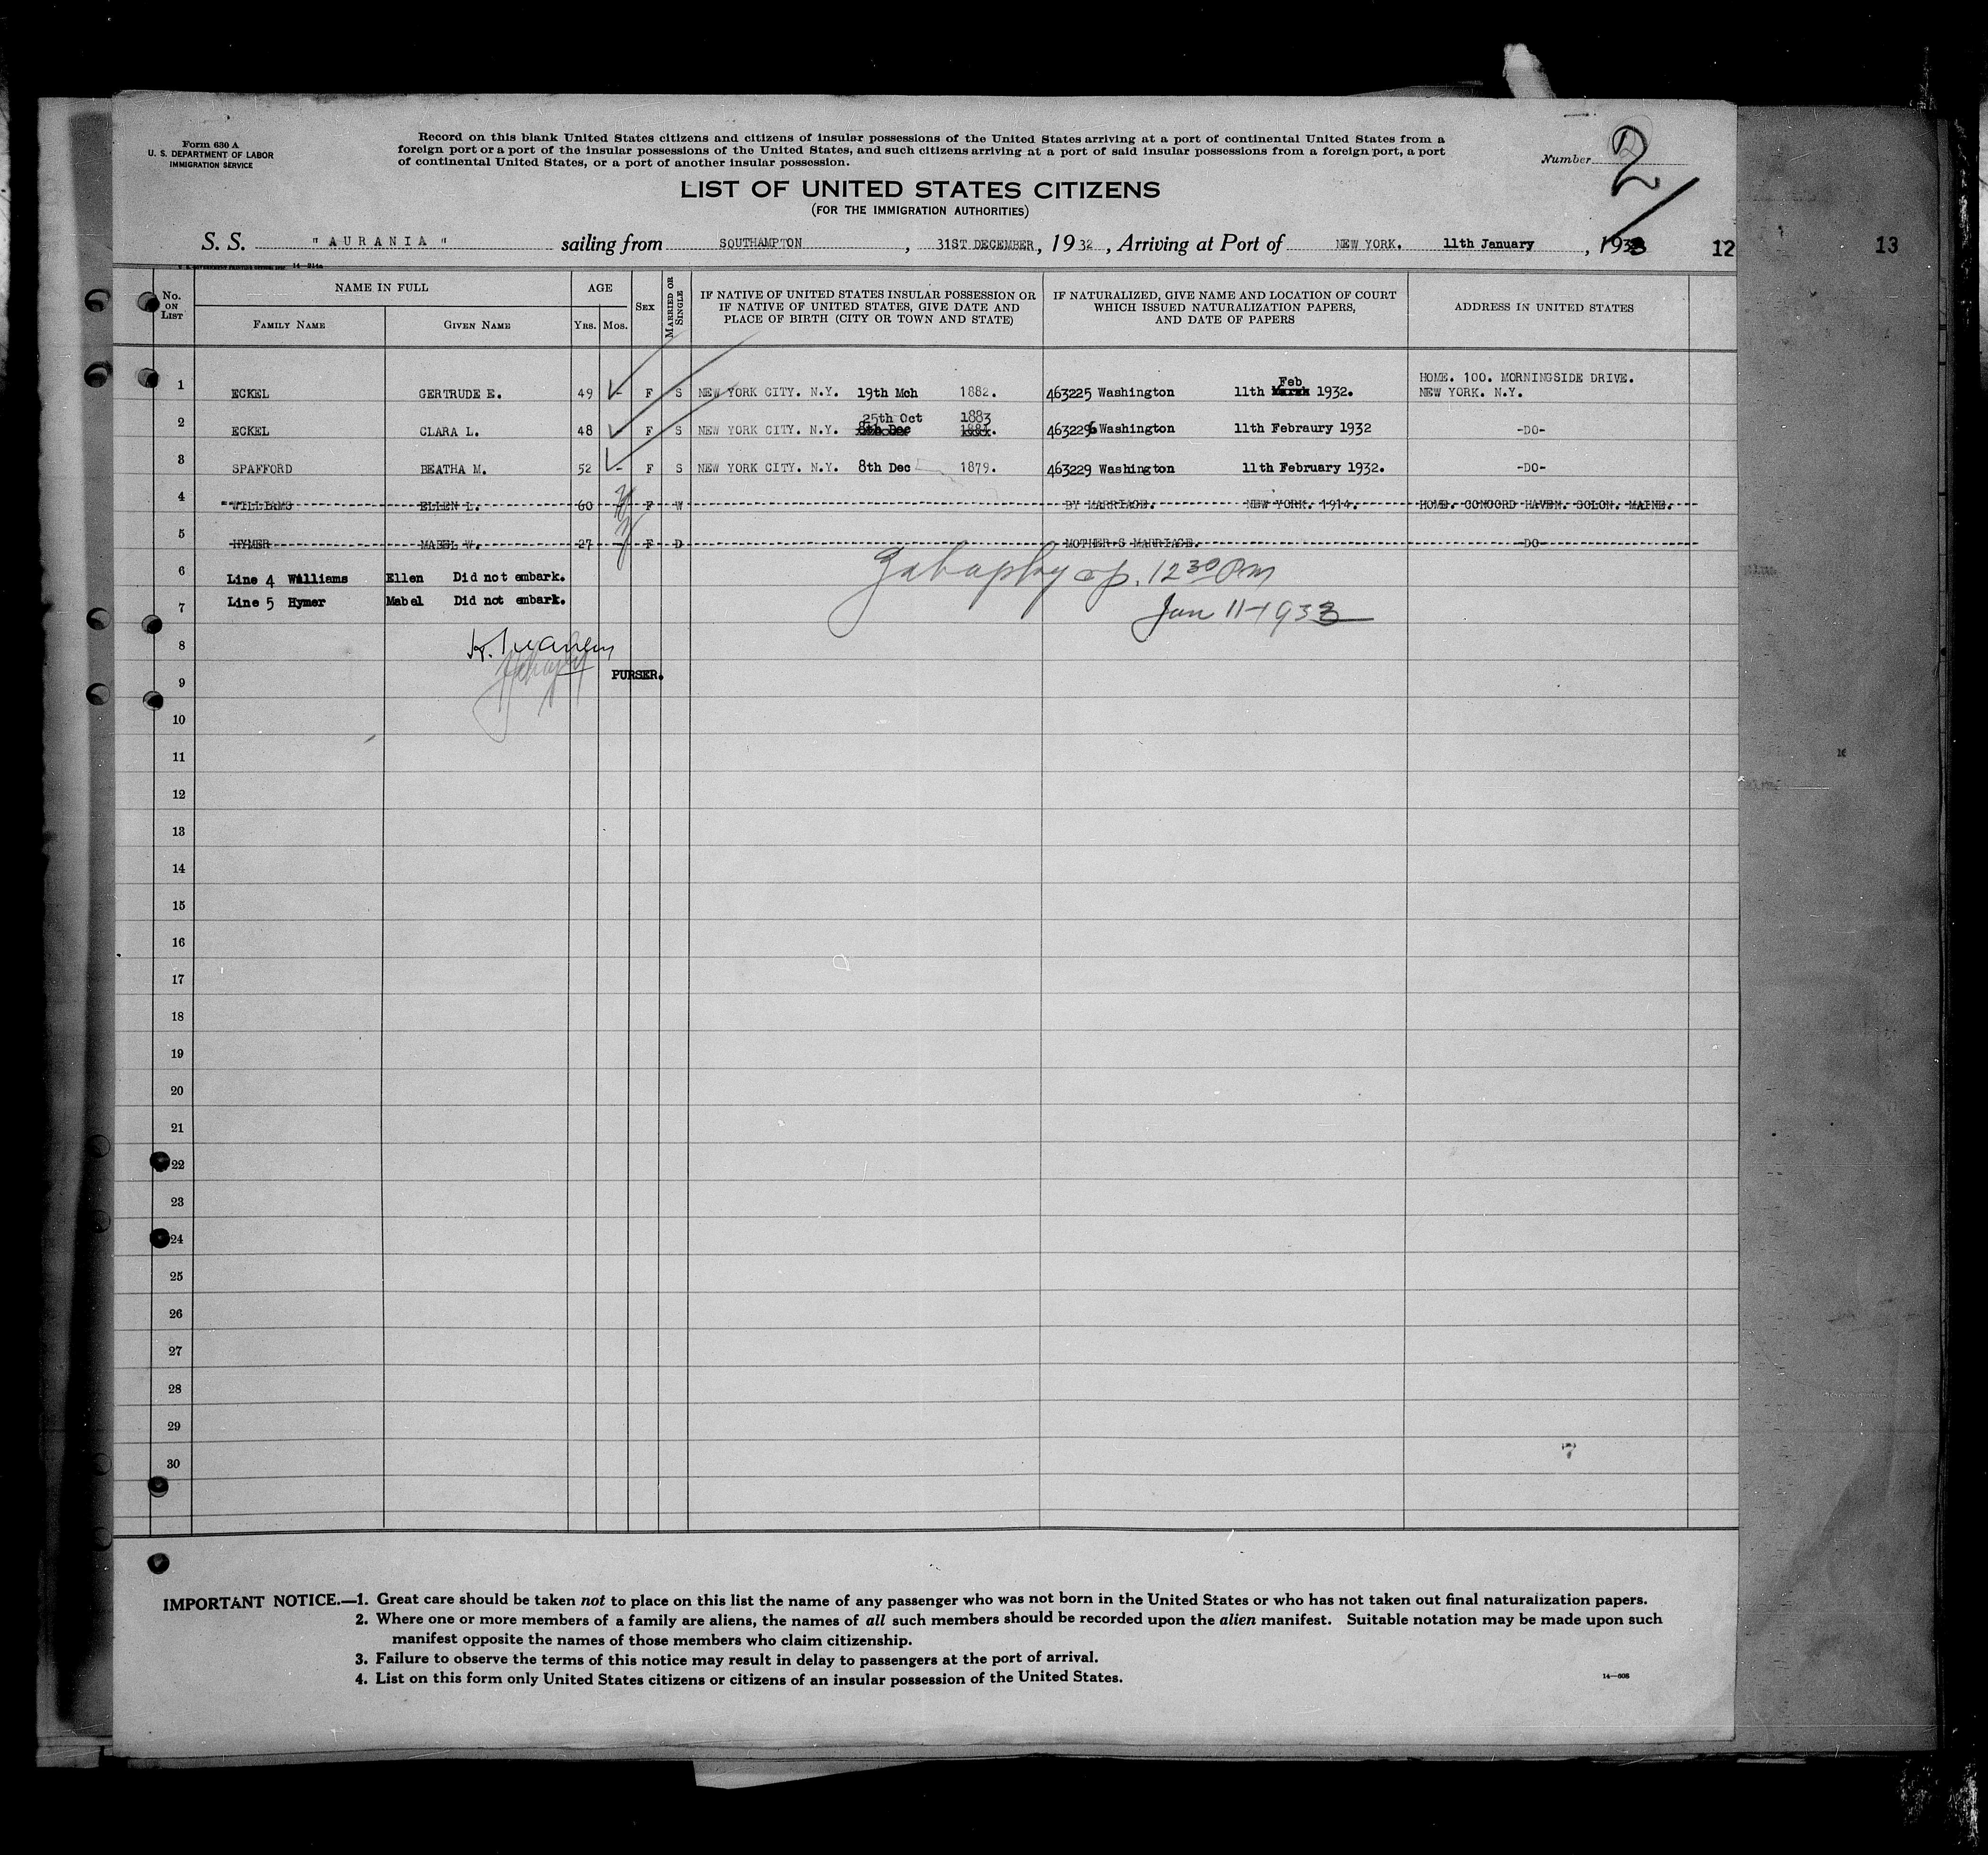 Form 630 A
U. S. DEPARTMENT OF LABOR
IMMIGRATION SERVICE
Record on this blank United States citizens and citizens of insular possessions of the United States arriving at a port of continental United States from a
foreign port or a port of the insular possessions of the United States, and such citizens arriving at a port of said insular possessions from a foreign port, a port
of continental United States, or a port of another insular possession.
Number 2
LIST OF UNITED STATES CITIZENS
(FOR THE IMMIGRATION AUTHORITIES)
S. S. "AURANIA" sailing from SOUTHAMPTON, 31ST DECEMBER, 1932, Arriving at Port of NEW YORK. 11th January, 1933 12 13
No. ON LIST
NAME IN FULL
FAMILY NAME
GIVEN NAME
AGE
YRS. MOS.
SEX
MARRIED OR SINGLE
IF NATIVE OF UNITED STATES INSULAR POSSESSION OR
IF NATIVE OF UNITED STATES, GIVE DATE AND
PLACE OF BIRTH (CITY OR TOWN AND STATE)
IF NATURALIZED, GIVE NAME AND LOCATION OF COURT
WHICH ISSUED NATURALIZATION PAPERS,
AND DATE OF PAPERS
ADDRESS IN UNITED STATES
1 ECKEL GERTRUDE E. 49 - F S NEW YORK CITY. N.Y. 19th Mch 1882. 463225 Washington 11th Feb 1932. HOME. 100. MORNINGSIDE DRIVE.
NEW YORK. N.Y.
25th Oct 1883
2 ECKEL CLARA L. 48 F S NEW YORK CITY. N.Y. 8th Dec 1881. 463226 Washington 11th Febraury 1932 -DO-
3 SPAFFORD BEATHA M. 52 - F S NEW YORK CITY. N.Y. 8th Dec 1879. 463229 Washington 11th February 1932. -DO-
4 WILLIAMS ELLEN L. 60 F W BY MARRIAGE. NEW YORK. 1914. HOME. CONCORD HAVEN. SOLON. MAINE.
5 HYMER MABEL W. 27 F D MOTHER S MARRIAGE. DO
6 Line 4 Williams Ellen Did not embark.
7 Line 5 Hymer Mabel Did not embark.
12 30 PM
Jan 11-1933
8
9 PURSER.
10
11
12
13
14
15
16
17
18
19
20
21
22
23
24
25
26
27
28
29
30
7
IMPORTANT NOTICE.—1. Great care should be taken not to place on this list the name of any passenger who was not born in the United States or who has not taken out final naturalization papers.
2. Where one or more members of a family are aliens, the names of all such members should be recorded upon the alien manifest. Suitable notation may be made upon such
manifest opposite the names of those members who claim citizenship.
3. Failure to observe the terms of this notice may result in delay to passengers at the port of arrival.
4. List on this form only United States citizens or citizens of an insular possession of the United States.
14—608